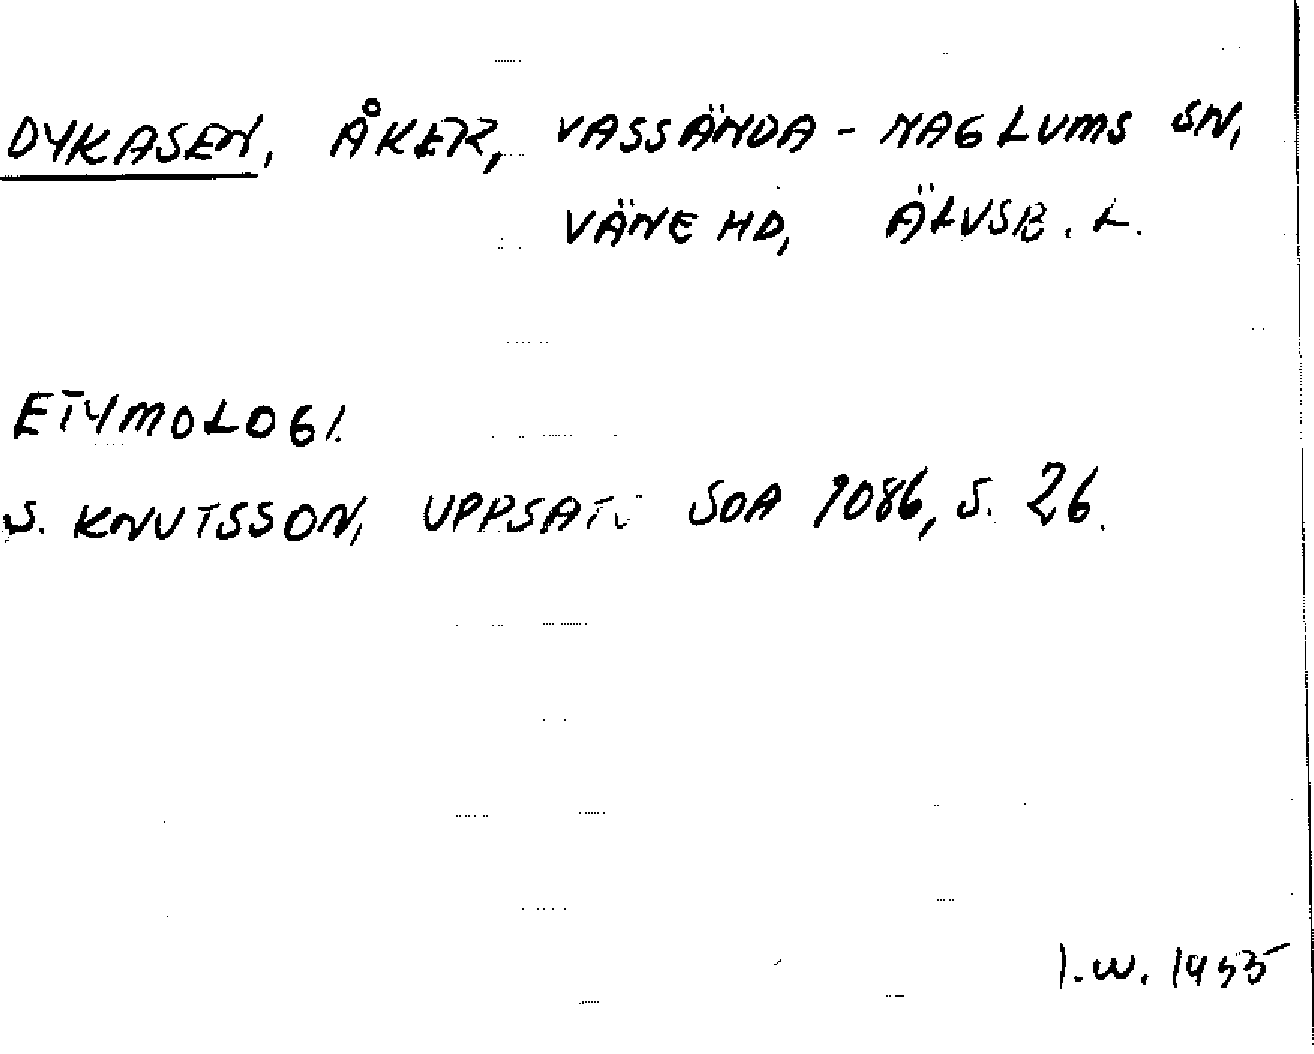 DYKASEN, ÅKER, VASSÄNDA - NAGLUMS SN,
VÄNE HD, ÄLVSB. L.
ETYMOLOGI.
S. KNUTSSON, SOA 9086, S. 26.
I.W. 1955